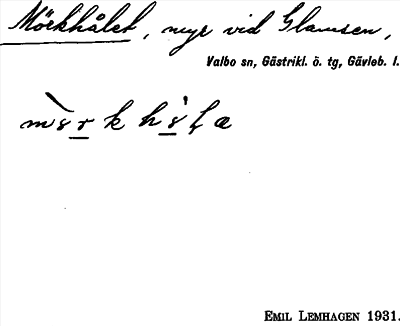 Mörkhålet, myr vid Glamsen,
Valbo sn, Gästrikl. ö. tg, Gävleb. l.
EMIL LEMHAGEN 1931.